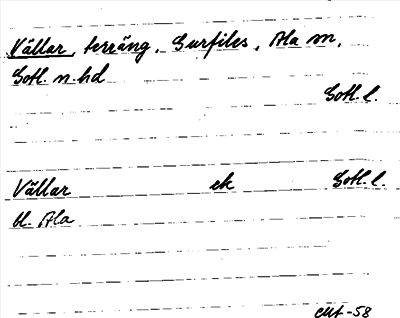 Vällar, terräng, Surfiles, Ala sn,
Gotl. n. hd
Gotl. l.
Vällar ek Gotl. l.
bl. Ala